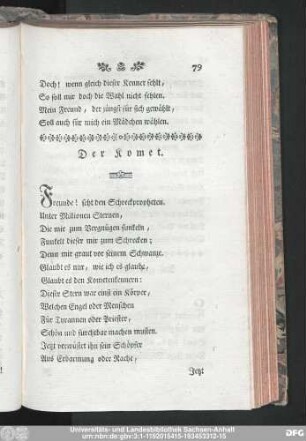 79
Doch! wenn gleich dieser Kenner fehlt,
So soll mir doch die Wahl nicht fehlen.
Mein Freund, der jüngst für sich gewählt,
Soll auch für mich ein Mädchen wählen.
Der Komet.
Freunde! seht den Schreckpropheten.
Unter Millionen Sternen,
Die mir zum Vergnügen funkeln,
Funkelt dieser mir zum Schrecken;
Denn mir graut vor seinem Schwanze.
Glaubt es nur, wie ich es glaube,
Glaubt es den Kometenkennern:
Dieser Stern war einst ein Körper,
Welchen Engel oder Menschen
Für Tyrannen oder Priester,
Schön und fürchtbar machen mußten.
Jetzt verwüstet ihn sein Schöpfer
Aus Erbarmung oder Rache,
Jetzt
DFG
Universitäts- und Landesbibliothek Sachsen-Anhalt
urn:nbn:de:gbv:3:1-1192015415-153453312-15